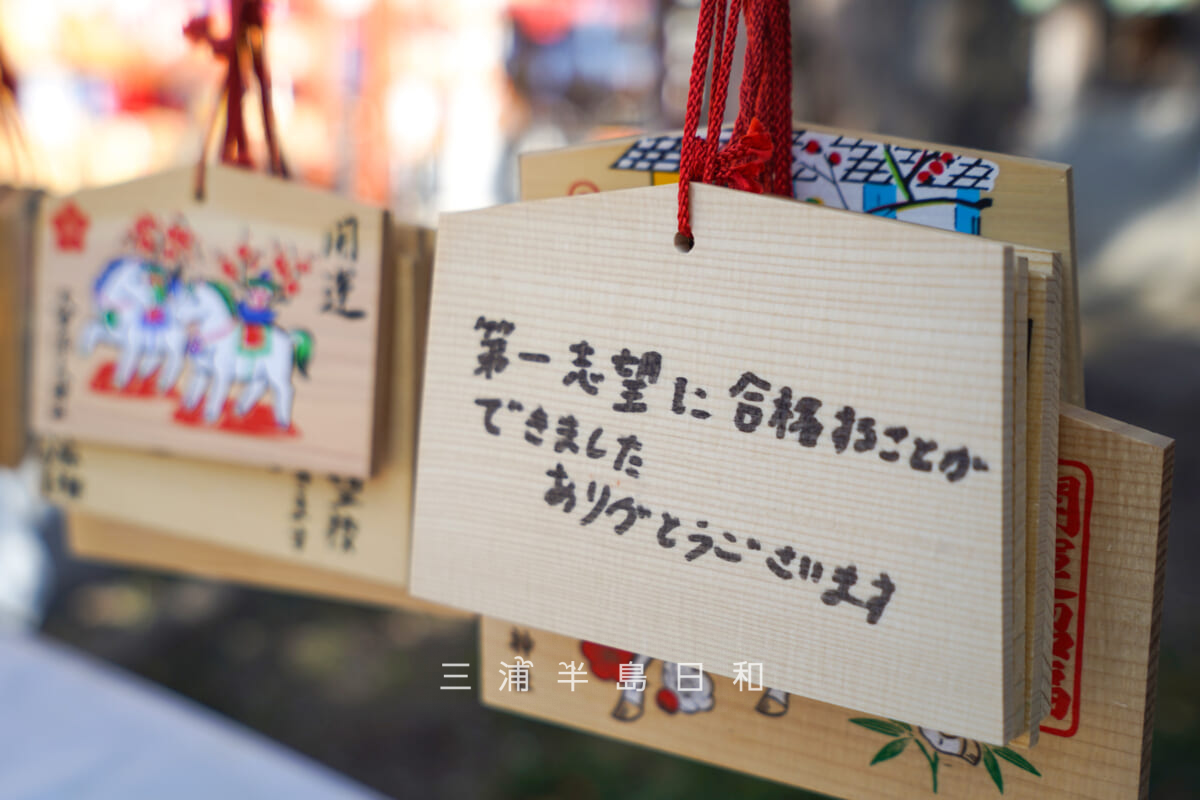 開運
第一志望に合格することが
できました
ありがとうございます
三浦半島日和